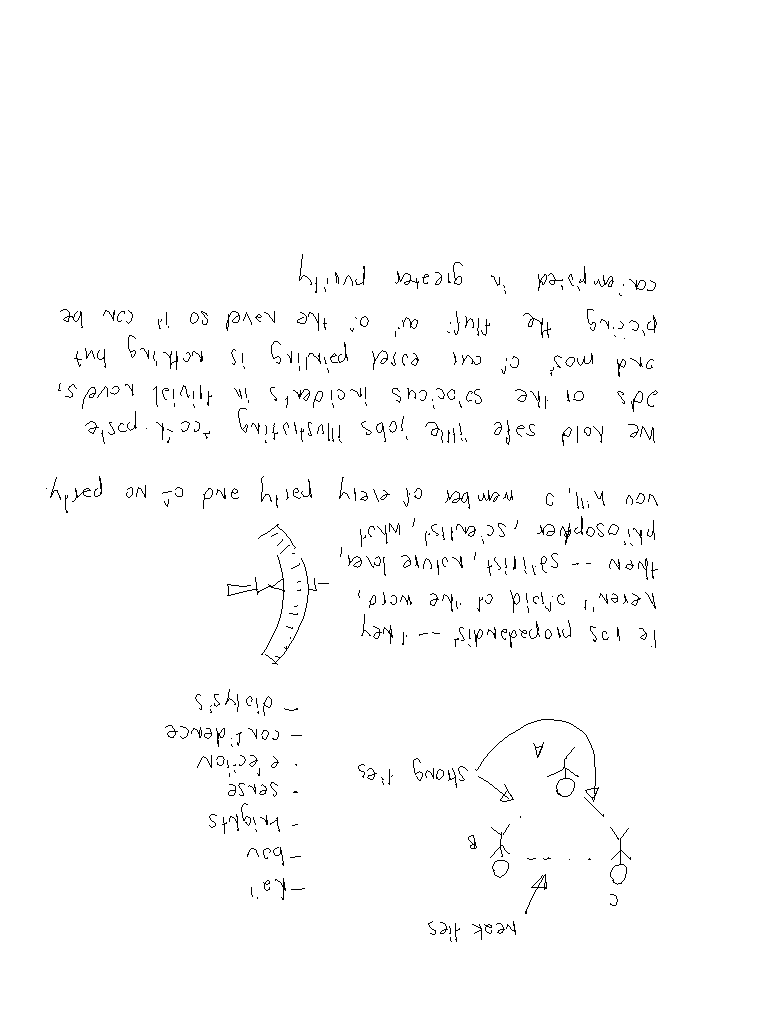 weak ties
C
B
A
strong ties
- Knights
- sense
- election
- confidence
- dialysis
He was propagandist -- they
weren't afraid of the word,
then -- satirist, nature lover,
philosopher, scientist, what
you will, a member of every party and of no party
We hold safe little jobs illustrating tooth-paste
ads or the salacious incidents in trivial novels,
and most of our easel painting is nothing but
picking the fluff out of the navel so it can be
contemplated in greater purity